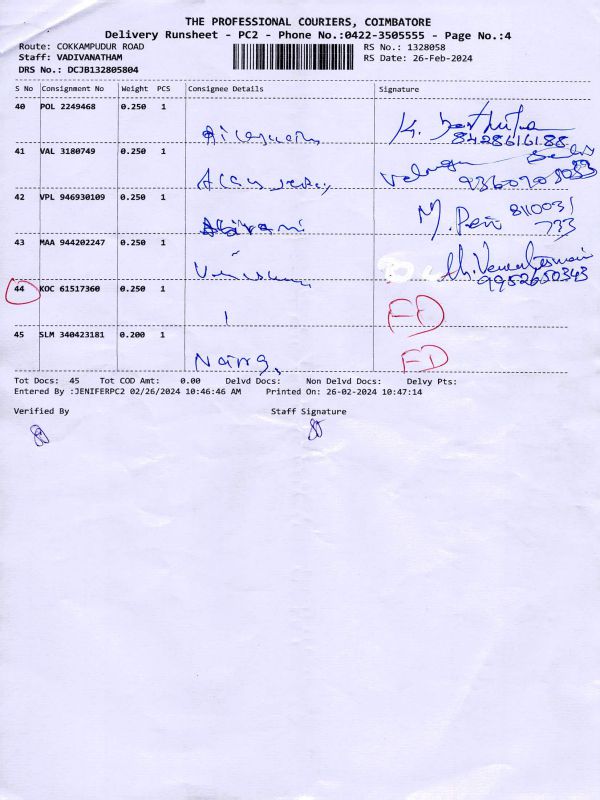 THE PROFESSIONAL COURIERS, COIMBATORE
Delivery Runsheet - PC2 - Phone No.:0422-3505555 - Page No.:4
Route: COKKAMPUDUR ROAD
RS No.: 1328058
Staff: VADIVANATHAM
RS Date: 26-Feb-2024
DRS No.: DCJB132805804
S No Consignment No Weight PCS Consignee Details Signature
40 POL 2249468 0.250 1
8428616188
41 VAL 3180749 0.250 1
42 VPL 946930109 0.250 1
733
43 MAA 944202247 0.250 1
9952650343
44 KOC 61517360 0.250 1
FD
45 SLM 340423181 0.200 1
FD
Tot Docs: 45 Tot COD Amt: 0.00 Delvd Docs: Non Delvd Docs: Delvy Pts:
Entered By :JENIFERPC2 02/26/2024 10:46:46 AM Printed On: 26-02-2024 10:47:14
Verified By Staff Signature